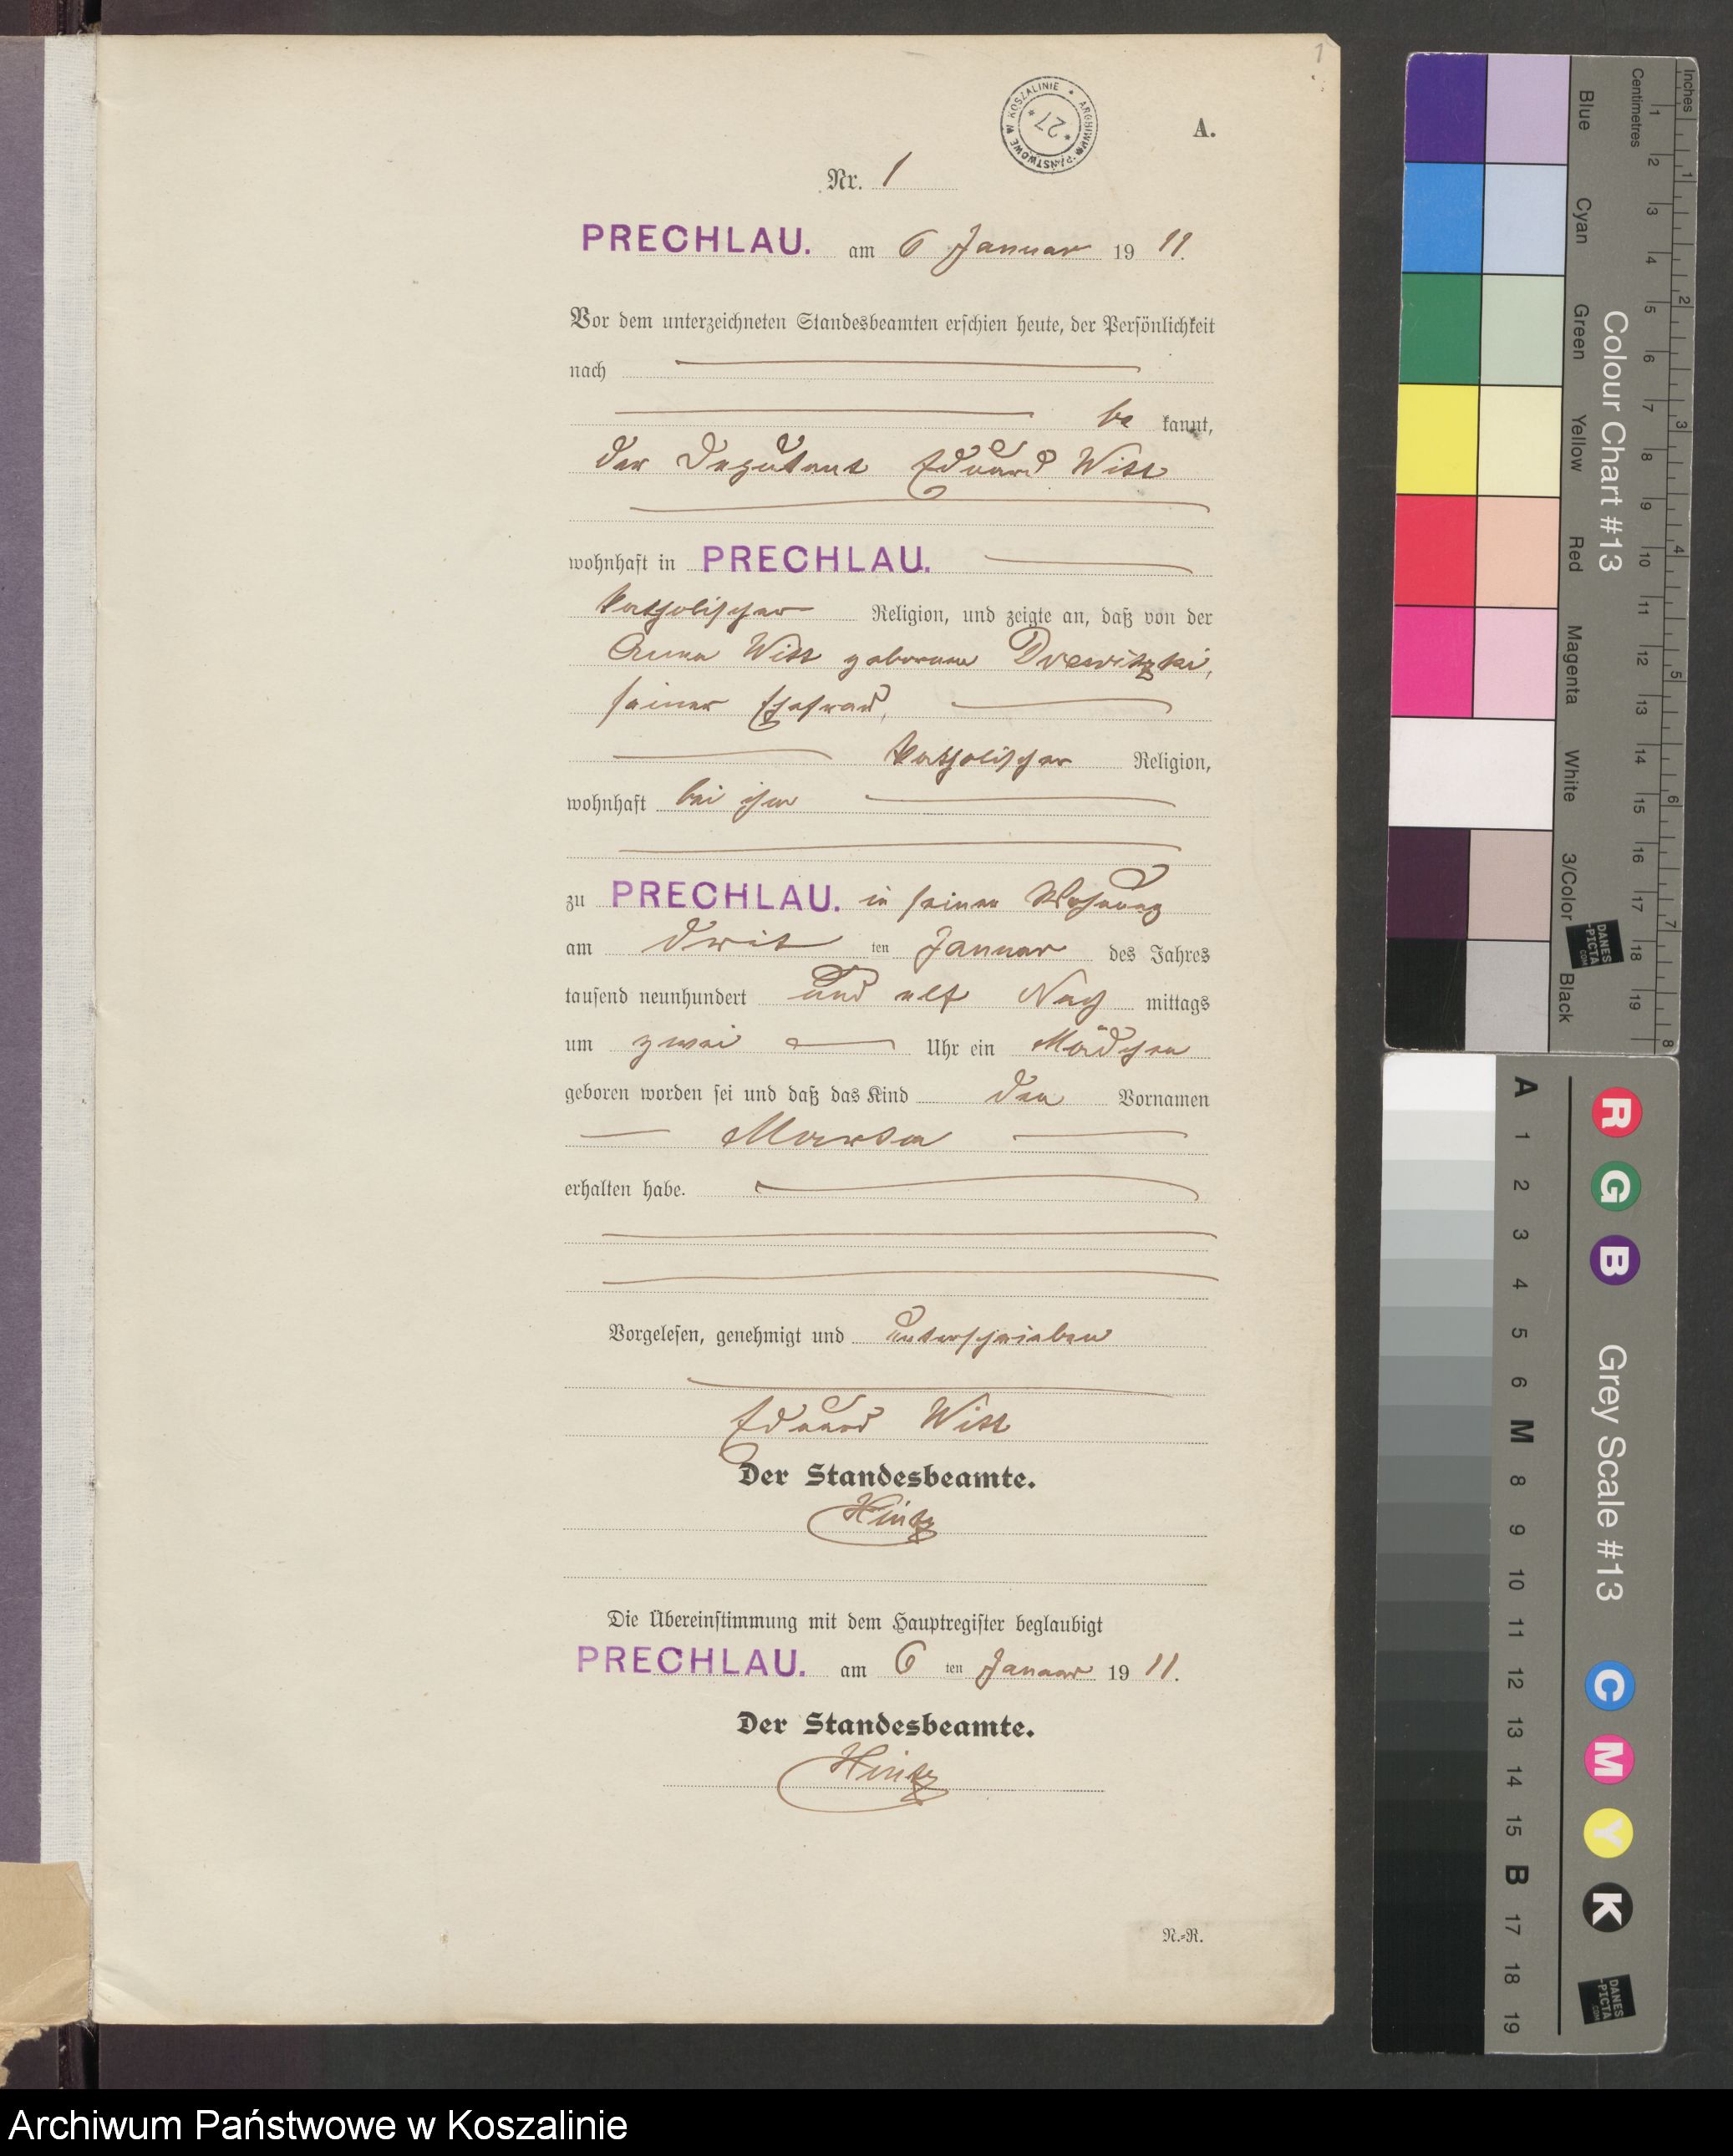 1
ARCHIWUM PAŃSTWOWE W KOSZALINIE * 27 *
A.
Nr. 1
PRECHLAU. am 6 Januar 19 11.
Vor dem unterzeichneten Standesbeamten erschien heute, der Persönlichkeit
nach
be kannt,
der Deputant Eduard Witt
wohnhaft in PRECHLAU.
katholischer Religion, und zeigte an, daß von der
Anna Witt geborene Drewitzki,
seiner Ehefrau,
katholischer Religion,
wohnhaft bei ihm
zu PRECHLAU. in seiner Wohnung
am dritten Januar des Jahres
tausend neunhundert und elf Nachmittags
um zwei Uhr ein Mädchen
geboren worden sei und daß das Kind den Vornamen
erhalten habe.
Vorgelesen, genehmigt und unterschrieben
Eduard Witt
Der Standesbeamte.
Hintz
Die Übereinstimmung mit dem Hauptregister beglaubigt
PRECHLAU. am 6 ten Januar 19 11.
Der Standesbeamte.
Hintz
N.-R.
Inches 1 2 3 4 5 6 7 8
Centimetres 1 2 3 4 5 6 7 8 9 10 11 12 13 14 15 16 17 18 19
Colour Chart #13
Blue Cyan Green Yellow Red Magenta White 3/Color Black
DANES
-PICTA
.COM
Grey Scale #13
A 1 2 3 4 5 6 M 8 9 10 11 12 13 14 15 B 17 18 19
R G B C M Y K
DANES
-PICTA
.COM
Archiwum Państwowe w Koszalinie